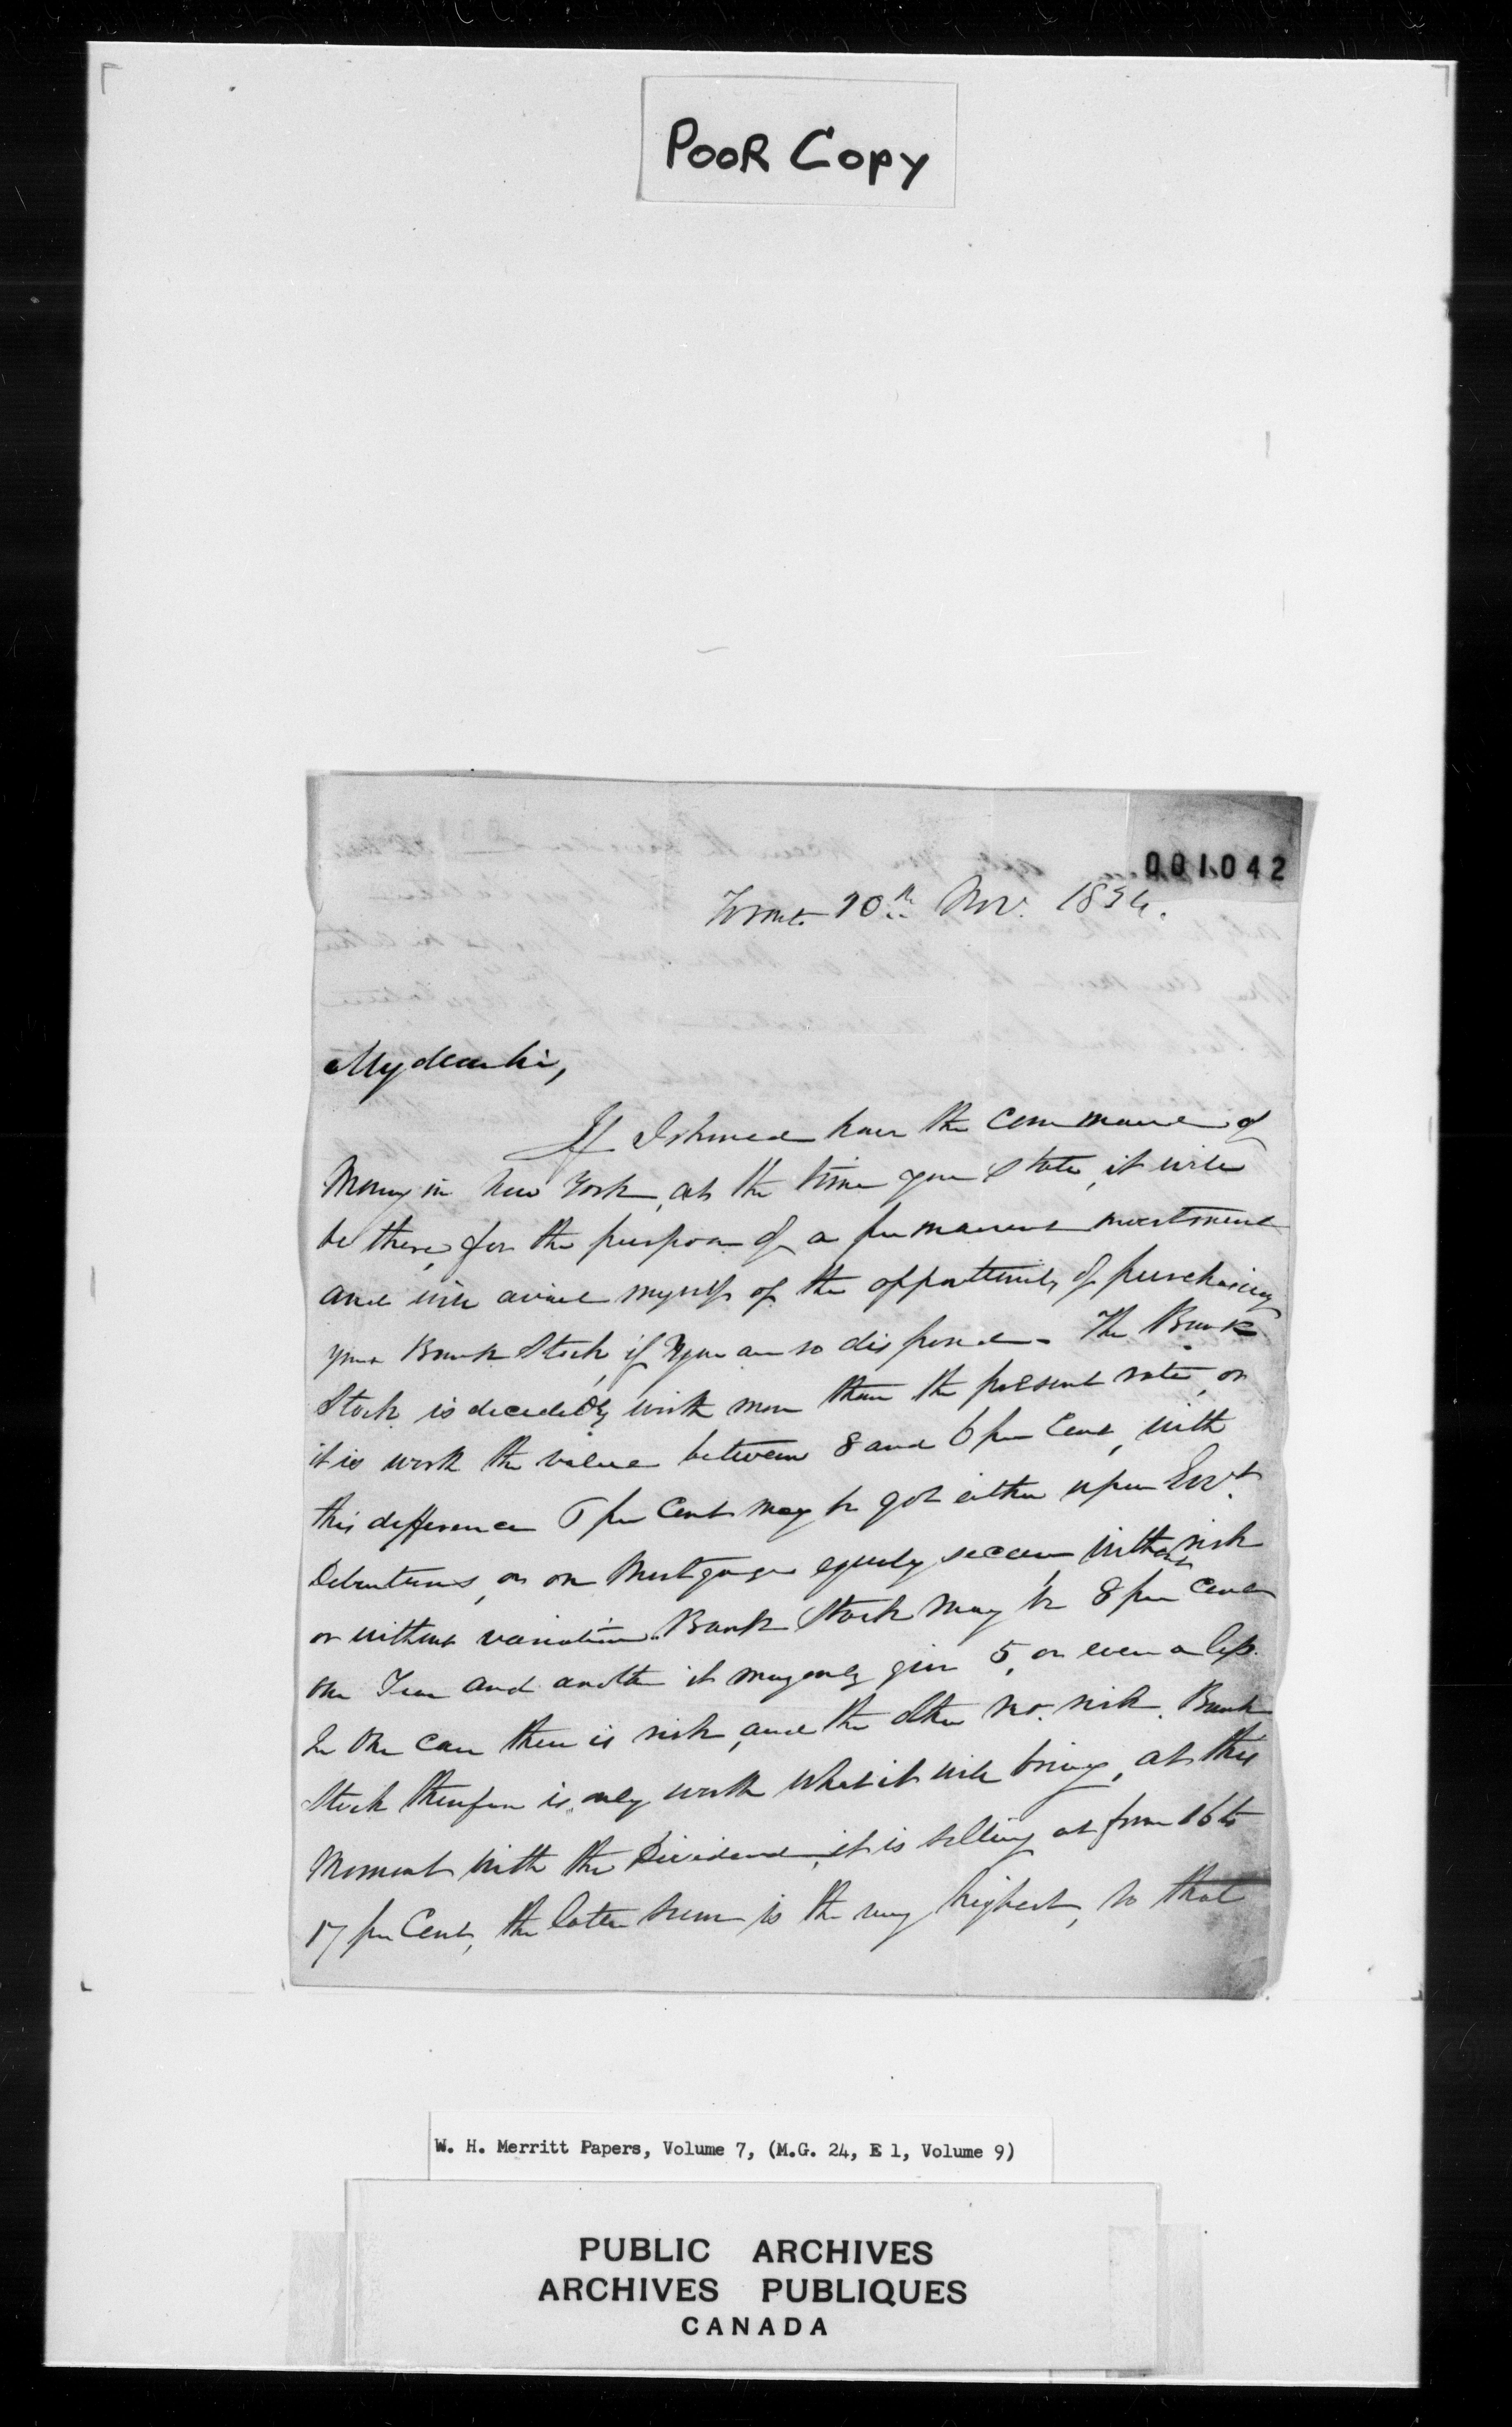 POOR COPY
001042
Toronto 20th Nov. 1834.
My dear Sir,
If I should have the command of
Money in New York, at the time you state, it will
be there, for the purpose of a permanent investment
and will avail myself of the opportunity of purchasing
your Bank Stock, if you are so disposed. The Bank
Stock is decidedly worth more than the present rate, or
it is worth the value between 8 and 6 per Cent, with
this difference 6 per Cent may be got either upon Govt.
Debentures, or on Mortgages equally secure, without risk
or without variation. Bank Stock may be 8 per Cent
one Year and another it may only give 5, or even a less.
In one case there is risk, and the other no. risk. Bank
Stock therefore is only worth what it will bring, at this
Moment with the Dividend, it is selling at from 16 to
17 per Cent, the latter sum is the very highest, so that
W. H. Merritt Papers, Volume 7, (M.G. 24, E 1, Volume 9)
PUBLIC ARCHIVES
ARCHIVES PUBLIQUES
CANADA